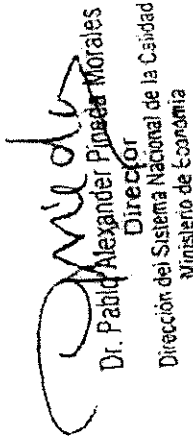 Dr. Pablo Alexander Pineda Morales
Director
Dirección del Sistema Nacional de la Calidad
Ministerio de Economía